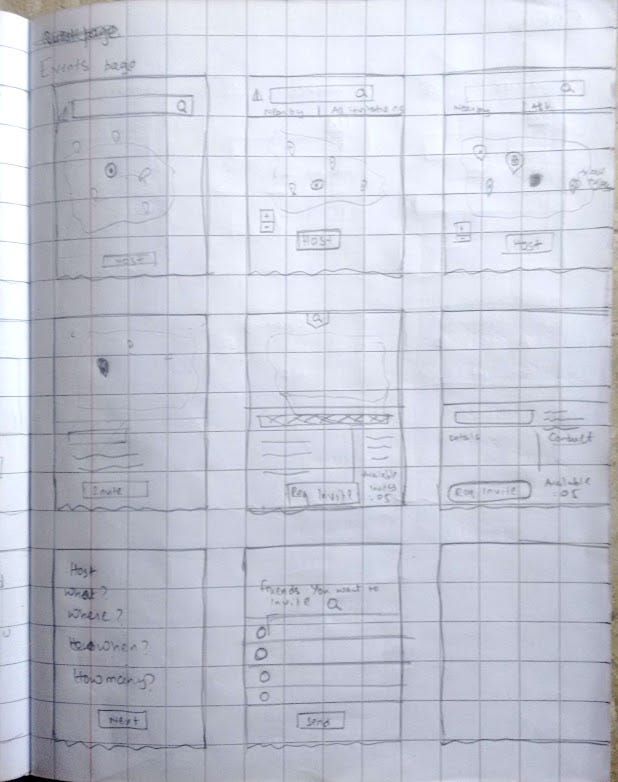 Events page
Nearby | All invitations
Nearby | All
HOST
HOST
HOST
Invite
Req Invite
Available
Invites
:05
Details
Contact
Req Invite
Available
:05
Host
What?
Where?
When?
How many?
Next
Friends You want to
invite
Send